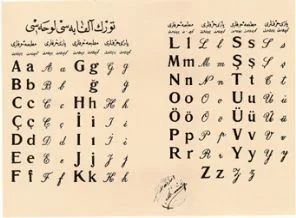 تورك آلفابه سی لوحه سی
مطبعه حرفلری یازی حرفلری مطبعه حرفلری یازی حرفلری
A a A a G g G g
B b B b ğ ğ
C c C c H h H h
Ç ç Ç ç İ i İ i
D d D d I ı I ı
E e E e J j J j
F f F f K k K k
مطبعه حرفلری یازی حرفلری مطبعه حرفلری یازی حرفلری
L l L l S s S s
M m M m Ş ş Ş ş
N n N n T t T t
O o O o U u U u
Ö ö Ö ö Ü ü Ü ü
P p P p V v V v
R r R r Y y Y y
Z z Z z